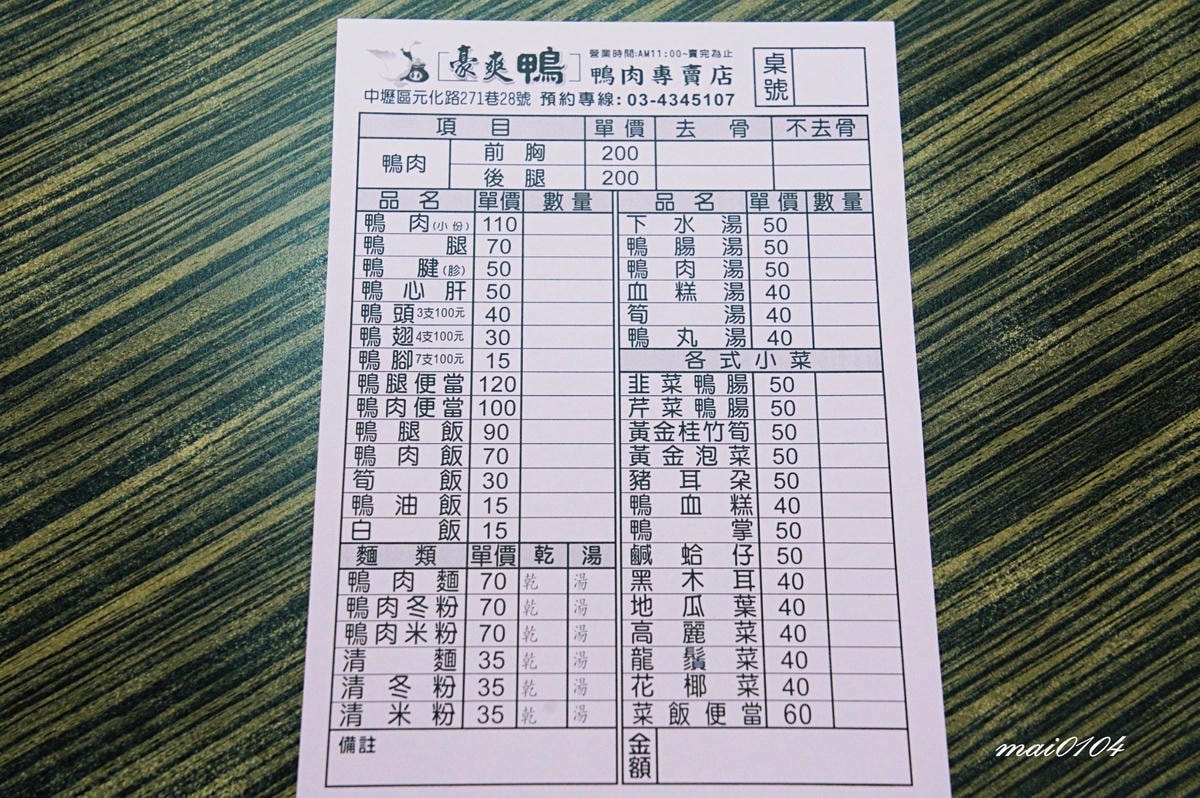 豪爽鴨
營業時間:AM11:00~賣完為止
鴨肉專賣店
中壢區元化路271巷28號 預約專線:03-4345107
桌號
項目 單價 去骨 不去骨
鴨肉 前胸 200
後腿 200
品名 單價 數量
鴨肉(小份) 110
鴨腿 70
鴨腱(胗) 50
鴨心肝 50
鴨頭3支100元 40
鴨翅4支100元 30
鴨腳7支100元 15
鴨腿便當 120
鴨肉便當 100
鴨腿飯 90
鴨肉飯 70
筍飯 30
鴨油飯 15
白飯 15
麵類 單價 乾 湯
鴨肉麵 70 乾 湯
鴨肉冬粉 70 乾 湯
鴨肉米粉 70 乾 湯
清麵 35 乾 湯
清冬粉 35 乾 湯
清米粉 35 乾 湯
備註
品名 單價 數量
下水湯 50
鴨腸湯 50
鴨肉湯 50
血糕湯 40
筍湯 40
鴨丸湯 40
各式小菜
韭菜鴨腸 50
芹菜鴨腸 50
黃金桂竹筍 50
黃金泡菜 50
豬耳朵 50
鴨血糕 40
鴨掌 50
鹹蛤仔 50
黑木耳 40
地瓜葉 40
高麗菜 40
龍鬚菜 40
花椰菜 40
菜飯便當 60
金額
mai0104